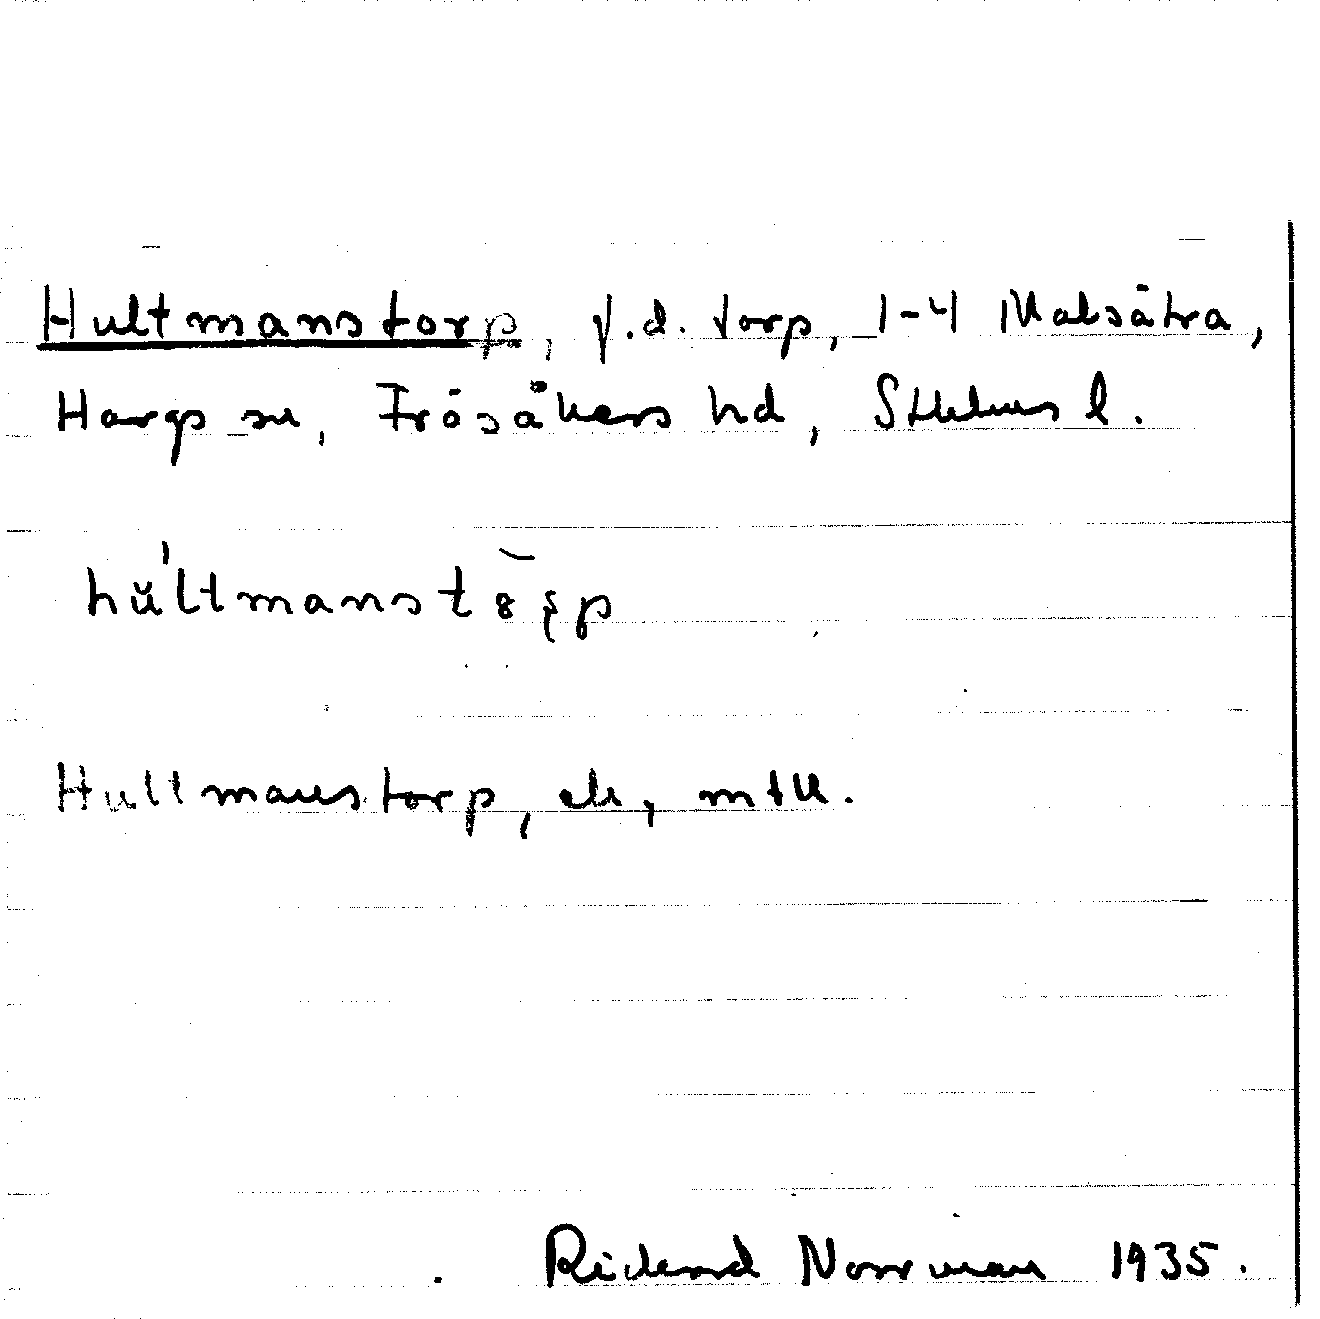 Hultmanstorp, f.d. torp, 1-4 Malsätra,
Hargs sn, Frösåkers hd, Sthlms l.
hŭ'ltmanst
Hultmanstorp, ek, mtl.
Richard Norrman 1935.